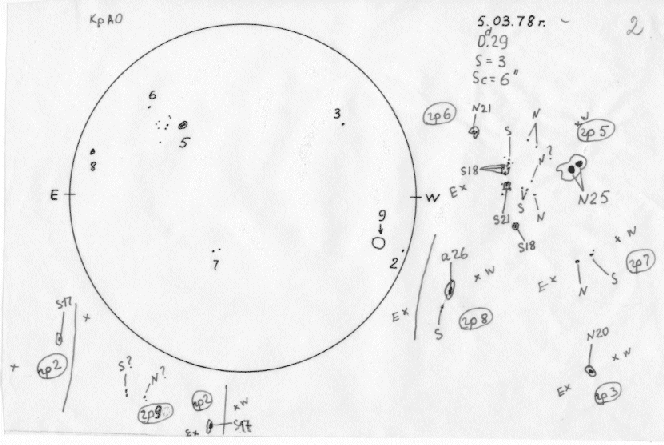 КрАО
5.03.78г.
2.
0.29
d
S = 3
Sc = 6"
6
3
5
8
E
W
9
7
2
гр6
N21
S
N
W
гр5
S18
N?
E
S21
S
N
N25
S18
W
гр7
E
N
S
N20
W
E
гр3
W
E
S
гр8
S17
гр2
S?
N?
гр9
гр2
W
E
S17